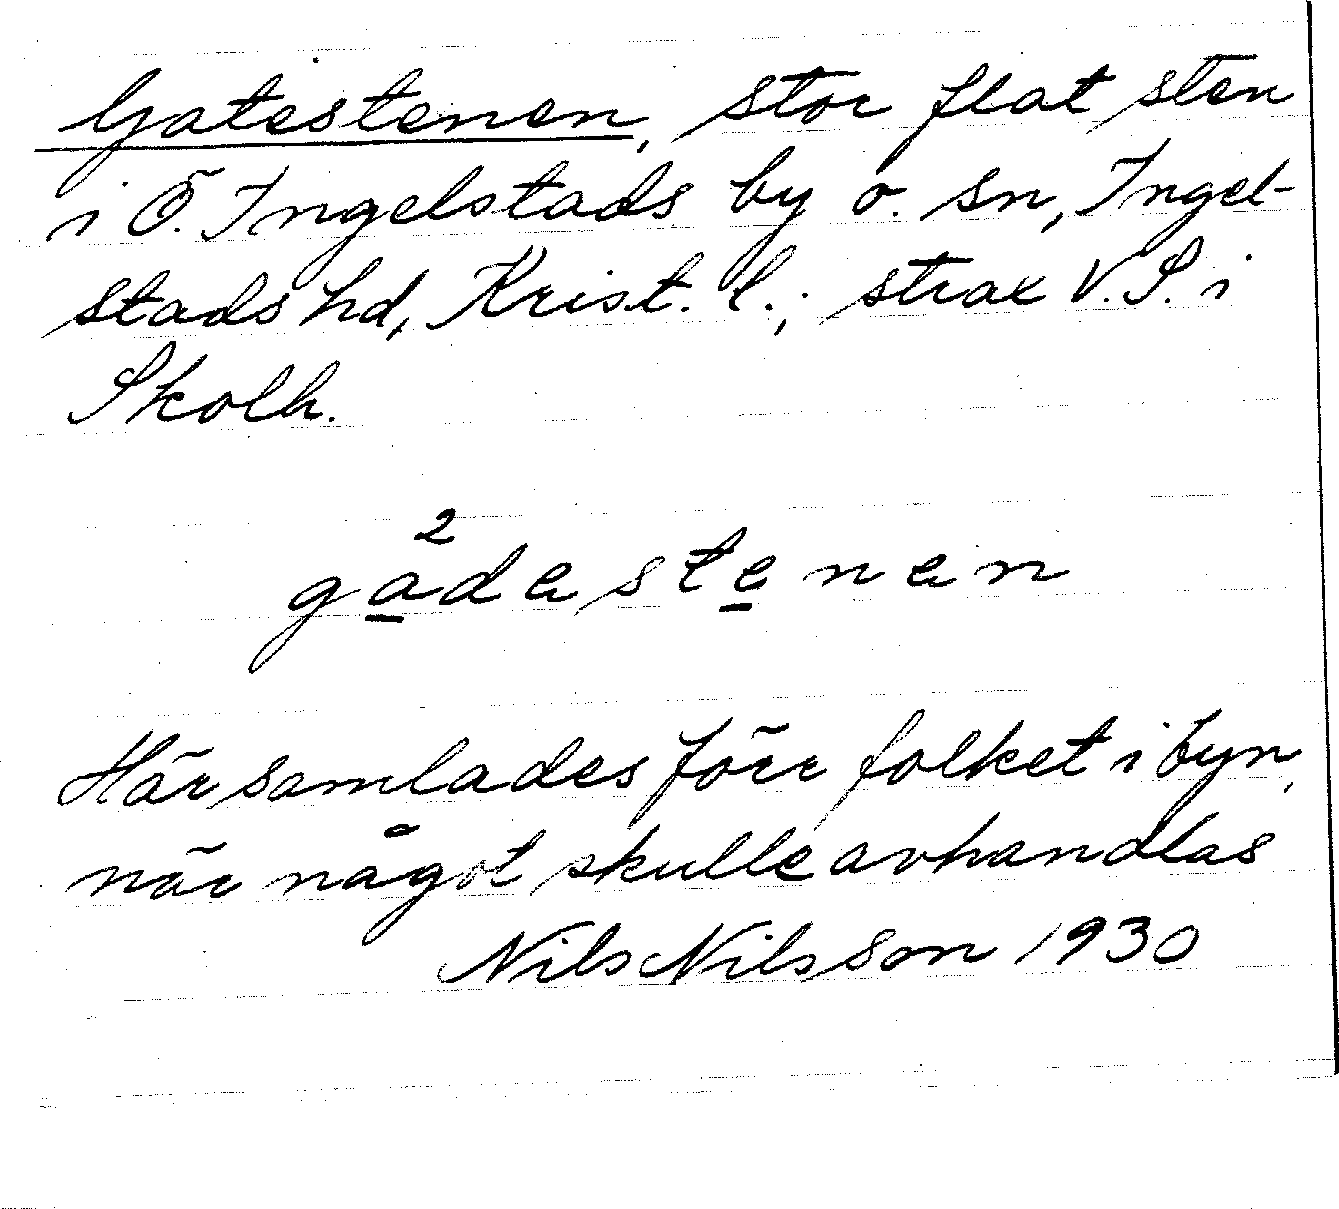 Gatestenen, stor flat sten
i Ö. Ingelstads by o. sn, Ingel-
stads hd, Krist. l.; strax V. S. i
Skolh.
2
gadestenen
Här samlades förr folket i byn,
när något skulle avhandlas
Nils Nilsson 1930